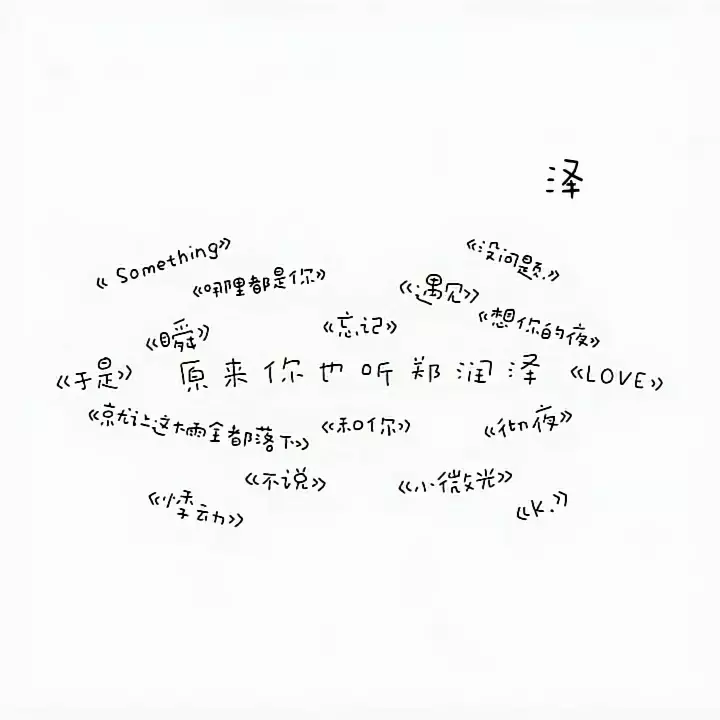 泽
《Something》
《没问题.》
《哪里都是你》
《遇见》
《想你的夜》
《瞬》
《忘记》
《于是》
原来你也听郑润泽
《LOVE》
《就让这大雨全都落下》
《和你》
《彻夜》
《不说》
《小微光》
《悸动》
《K.》